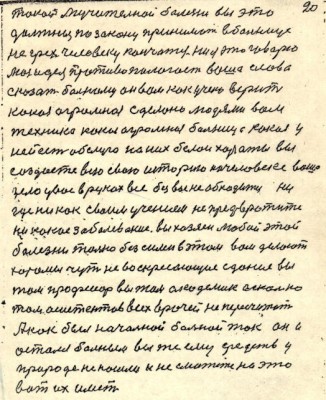 20
такой мучительной болезни вы это
должны по закону принимет в больнице
не грех человеку кончатся и я это говорю
моя идея противополагает ваша слова
сказат больному он вам как ученю верит
какая огромноя сделано людями вам
техника какая огромноя больниц с какая у
на них белои халаты вы
создаете всю свою историю на человеке ваше
дело у вас в руках все без вы не обходити ни
где никак своим учением не предвротите
никакое заболевание вы хозяен любой этой
болезни толко бессилен в этом вам делают
харами чут не воскресающие сдание вы
там професор вы там академик сколко
там асистентов всех врочей не перечитат
А как был началной болной так он и
осталя больным вы же ему средств у
природе не нашли и не сможите на это
вот их имет